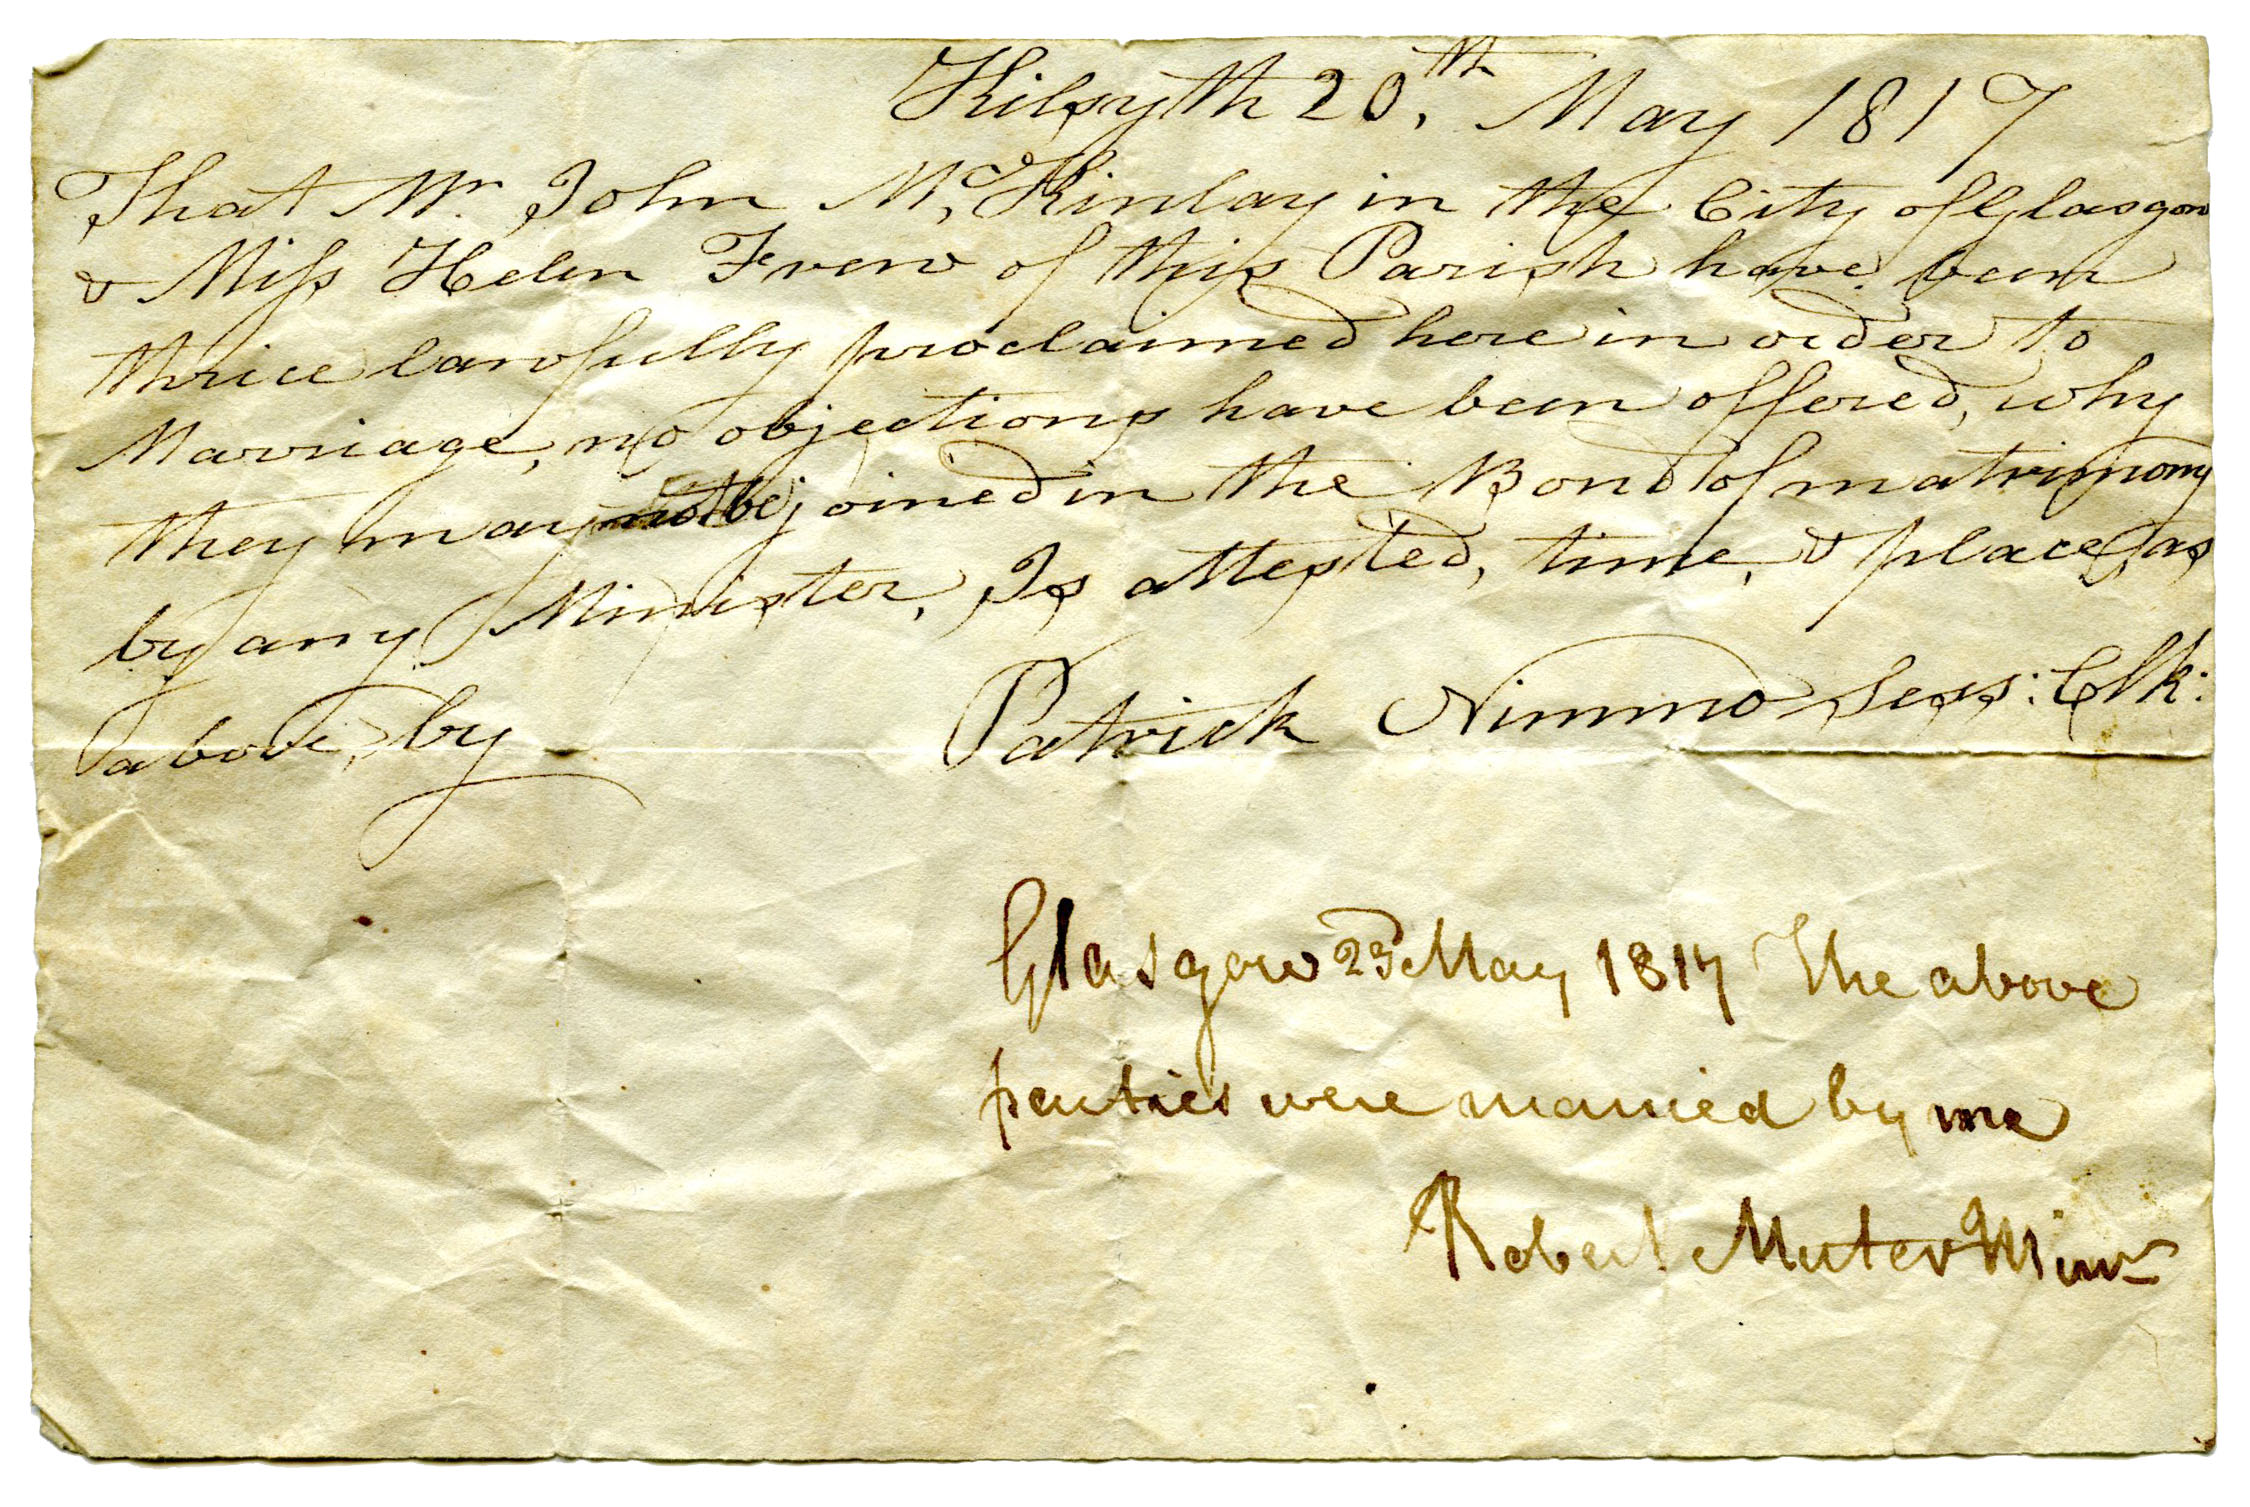 Kilsyth 20th. May 1817
That Mr. John McKinlay in the City of Glasgow
& Miss Helen Frew of this Parish have been
thrice lawfully proclaimed here in order to
Marriage, no objections have been offered, why
they may not be joined in the Bond of matrimony
by any Minister, Is attested, time, & place, as
above, by Patrick Nimmo Sess: Clk:
Glasgow 23d May 1817 The above
parties were married by me
Robert Muter Minr